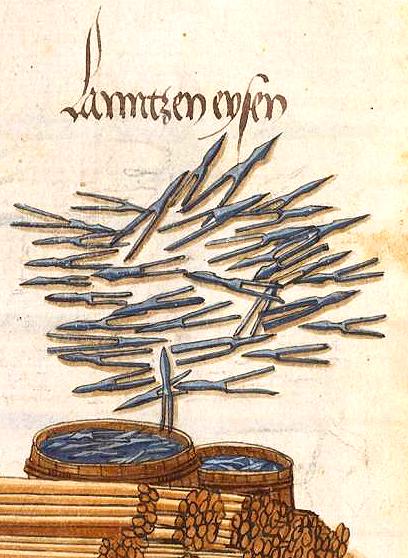 Lanntzen eysen